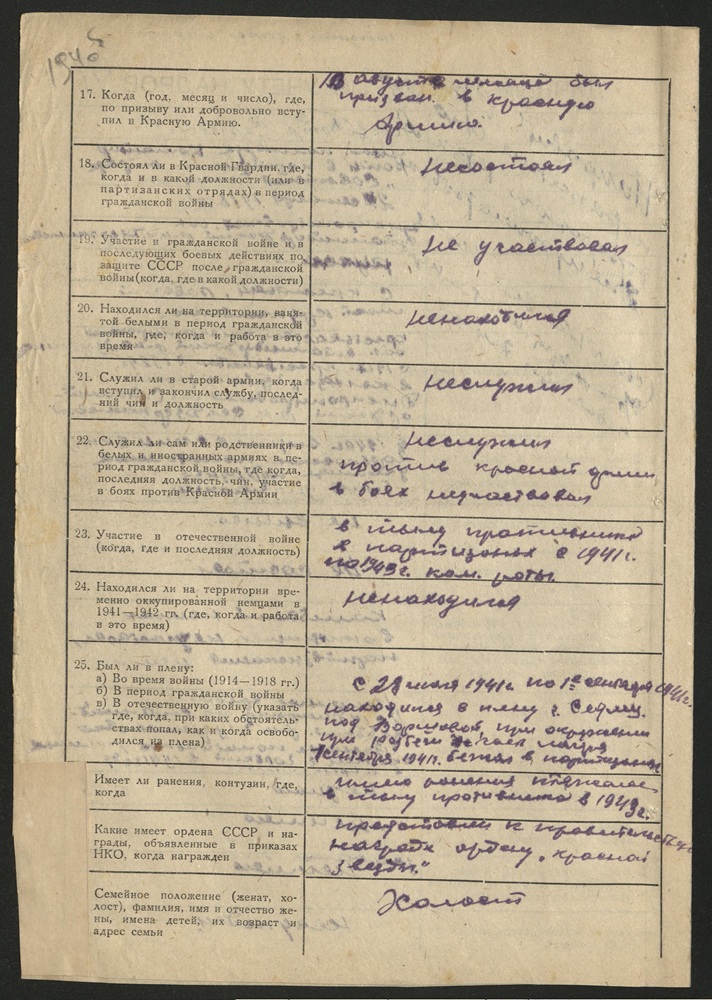 1940
17. Когда (год, месяц и число), где,
по призыву или добровольно всту-
пил в Красную Армию.
В августе месяце был
призван в красную
Армию.
18. Состоял ли в Красной Гвардии, где,
когда и в какой должности (или в
партизанских отрядах) в период
гражданской войны
несостоял
19. Участие в гражданской войне и в
последующих боевых действиях по
защите СССР после гражданской
войны (когда, где в какой должности)
Не участвовал
20. Находился ли на территории, заня-
той белыми в период гражданской
войны, где, когда и работа в это
время
ненаходился
21. Служил ли в старой армии, когда
вступил и закончил службу, послед-
ний чин и должность
неслужил
22. Служил ли сам или родственники в
белых и иностранных армиях в пе-
риод гражданской войны, где когда,
последняя должность, чин, участие
в боях против Красной Армии
неслужил
против красной армии
в боях неучаствовал
23. Участие в отечественной войне
(когда, где и последняя должность)
в тылу противника
в партизанах с 1941 г.
по 1943 г. ком. роты.
24. Находился ли на территории вре-
менно оккупированной немцами в
1941—1942 гг. (где, когда и работа
в это время)
ненаходился
25. Был ли в плену:
а) Во время войны (1914—1918 гг.)
б) В период гражданской войны
в) В отечественную войну (указать
где, когда, при каких обстоятель-
ствах попал, как и когда освобо-
дился из плена)
с 28 июля 1941 г. по 1е сентября 1941 г.
находился в плену г. Седлец
под Варшавой при окружении
при
сентября 1941 г. бежал в партизаны
Имеет ли ранения, контузии, где,
когда
имею ранения
в тылу противника в 1943 г.
Какие имеет ордена СССР и на-
грады, объявленные в приказах
НКО, когда награжден
представлен к
награде ордену „красной
звезды."
Семейное положение (женат, хо-
лост), фамилия, имя и отчество же-
ны, имена детей, их возраст и
адрес семьи
Холост